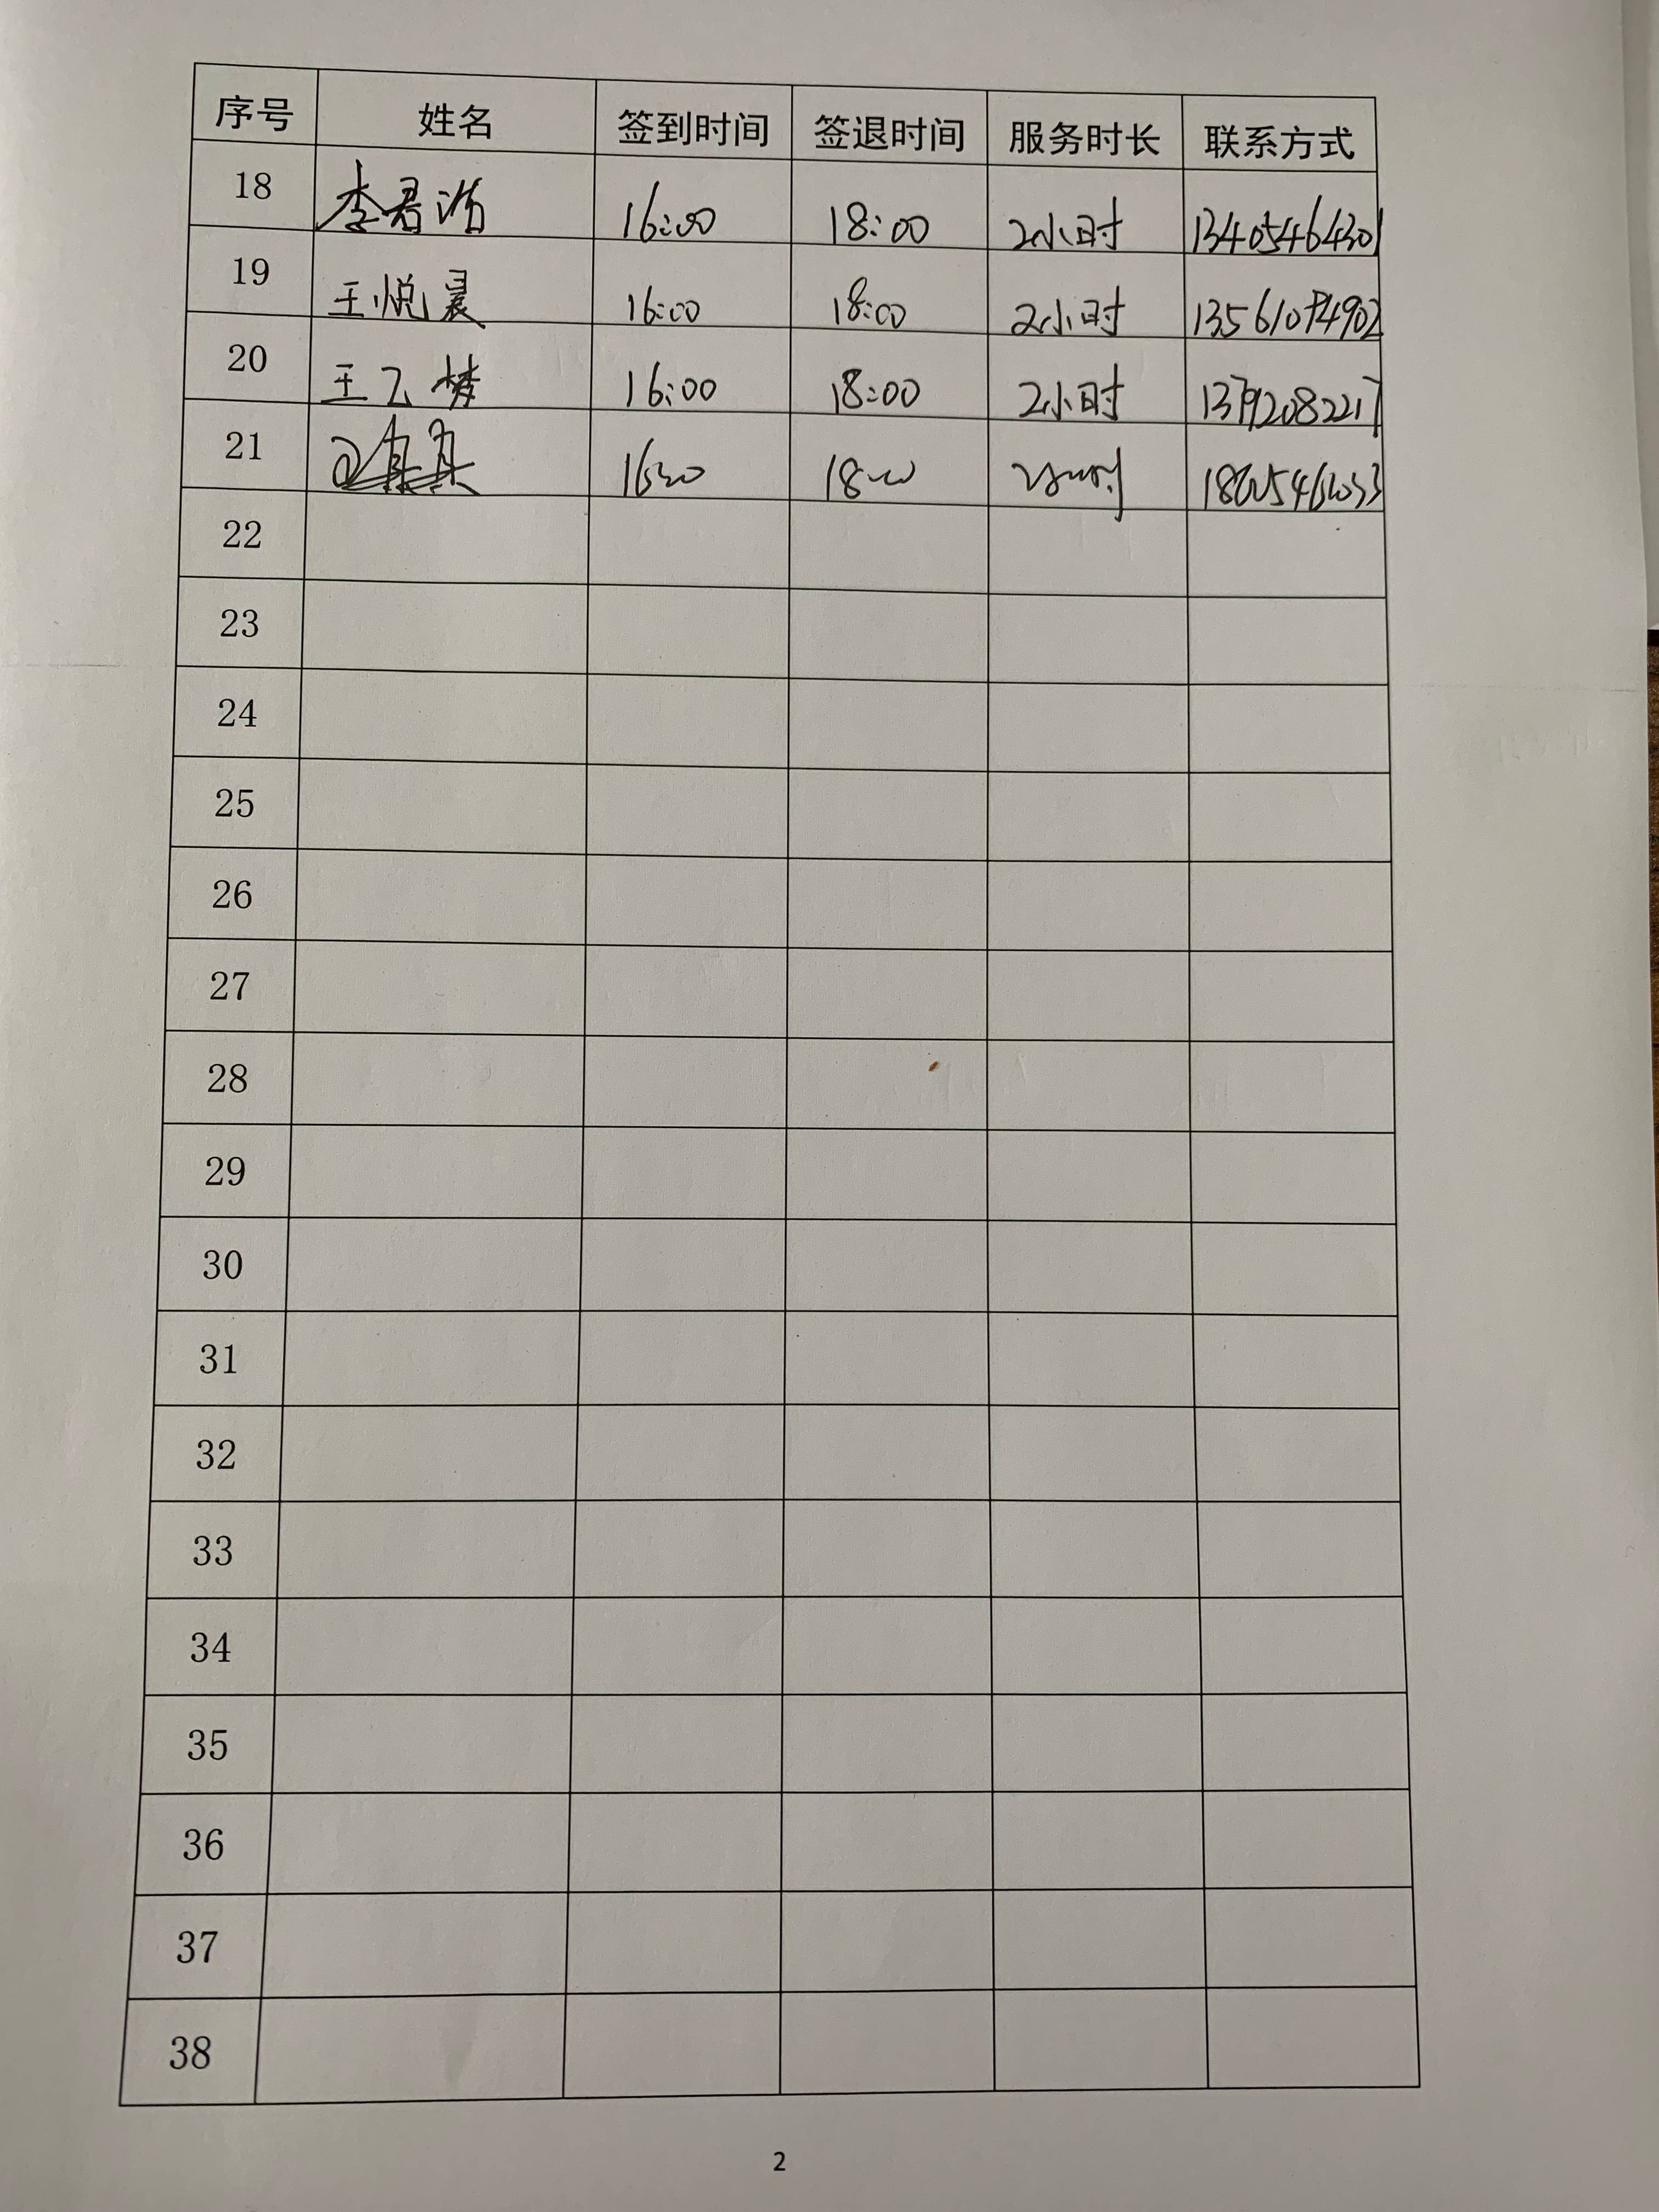 序号 姓名 签到时间 签退时间 服务时长 联系方式
18 李君浩 16:00 18:00 2小时 13405464301
19 王悦晨 16:00 18:00 2小时
20 王乙梦 16:00 18:00 2小时 13792082217
21
22
23
24
25
26
27
28
29
30
31
32
33
34
35
36
37
38
2